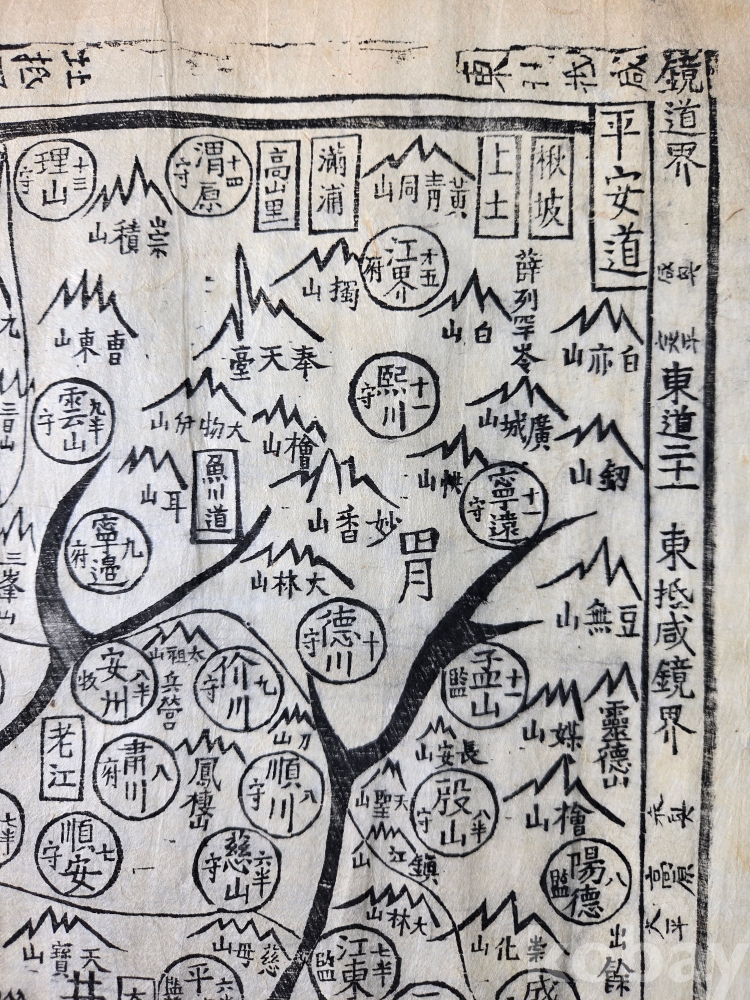 鏡道界
東道二十一
東抵咸鏡界
平安道
楸坡
上土
黃靑同山
滿浦
高山里
十四 渭原 守
十三 理山 守
崇積山
江界 府
獨山
白山
薛列罕岺
白亦山
奉天臺
曺東山
十一 熙川 守
廣城山
大物伊山
檜山
九半 雲山 守
魚川道
耳山
妙香山
胃
十一 寧遠 守
九 寧邉 府
大林山
三峯山
豆無山
十 德川 守
十一 孟山 監
太祖山
兵營
八半 安州 牧
九 价川 守
刀山
媒山
靈德山
長安山
老江
八 肅川 府
鳳棲山
八 順川 守
天聖山
八半 殷山 守
檜山
江山
鎭
七 順安 守
六半 慈山 守
八 陽德 監
大林山
崇化山
慈母山
天寶山
七半 江東 監
七半
出餘